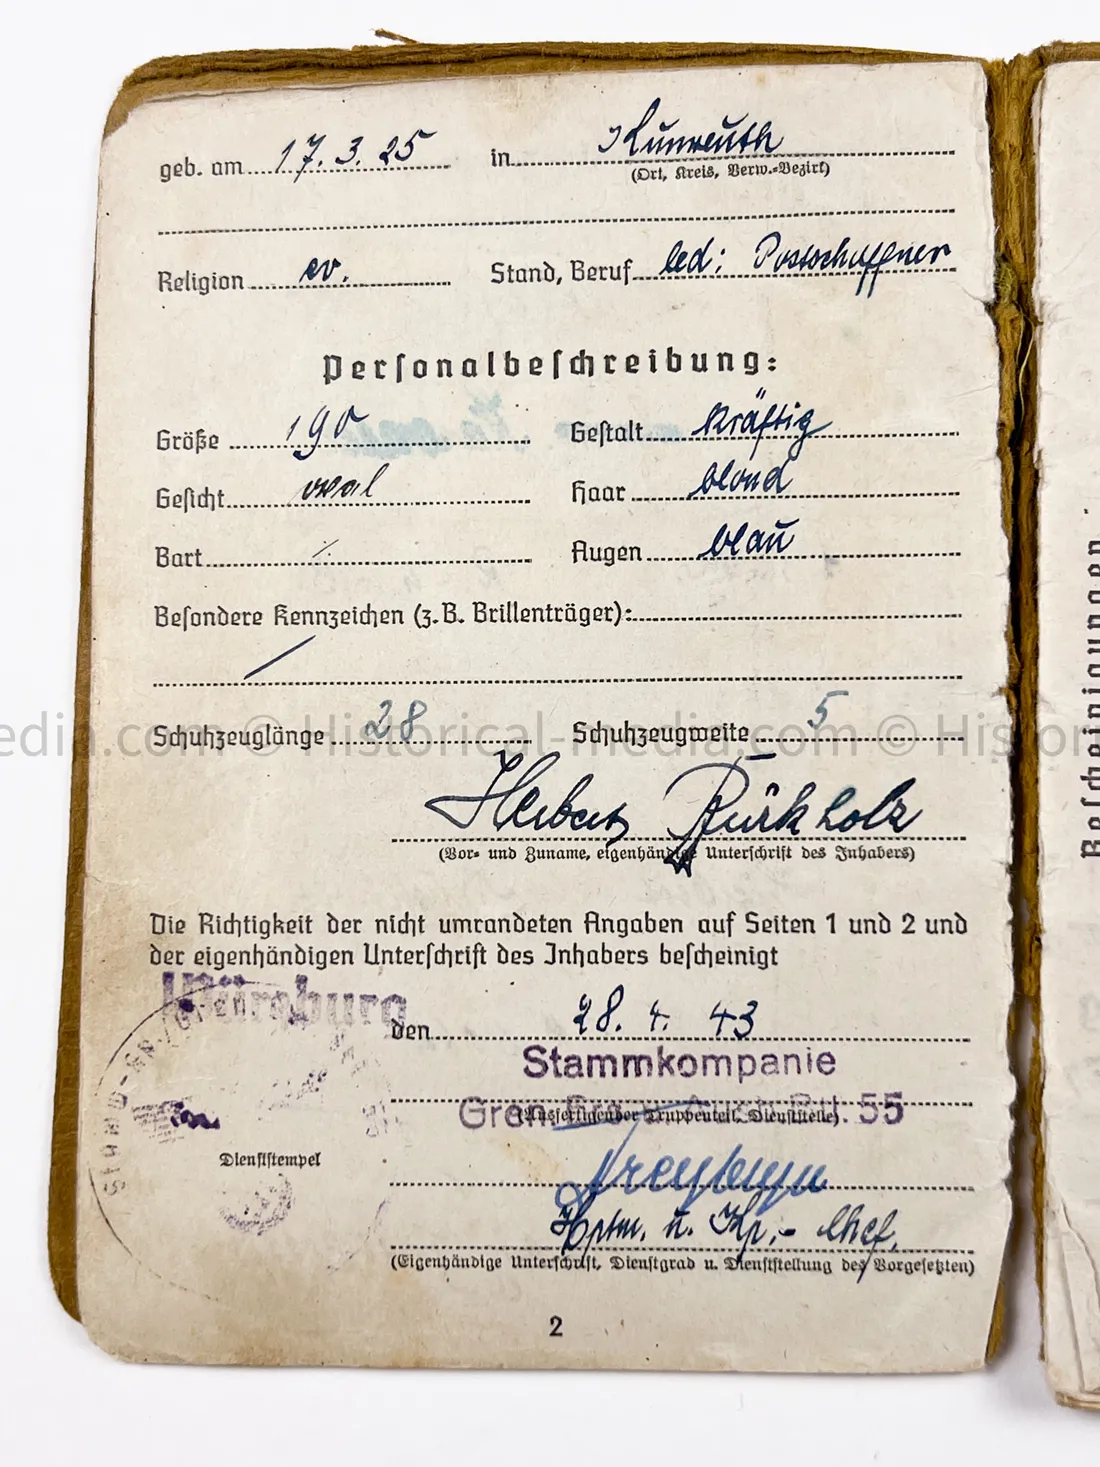 geb. am 17. 3. 25 in Kunreuth
(Ort, Kreis, Verw.-Bezirk)
Religion ev. Stand, Beruf led: Postschaffner
Personalbeschreibung:
Größe 190 Gestalt kräftig
Gesicht oval Haar blond
Bart ⁒ Augen blau
Besondere Kennzeichen (z. B. Brillenträger):
/
edia.com © Historical-media.com © Histor
Schuhzeuglänge 28 Schuhzeugweite 5
Herbert Bürkholz
(Vor- und Zuname, eigenhändige Unterschrift des Inhabers)
Die Richtigkeit der nicht umrandeten Angaben auf Seiten 1 und 2 und
der eigenhändigen Unterschrift des Inhabers bescheinigt
Würzburg den 28. 4. 43
Stammkompanie
Gren. Ers. u. Ausb. Btl. 55
(Ausfertigender Truppenteil, Dienststelle)
Dienststempel
Hptm. u. Kp.- Chef.
(Eigenhändige Unterschrift, Dienstgrad u. Dienststellung des Vorgesetzten)
2
Bescheinigungen